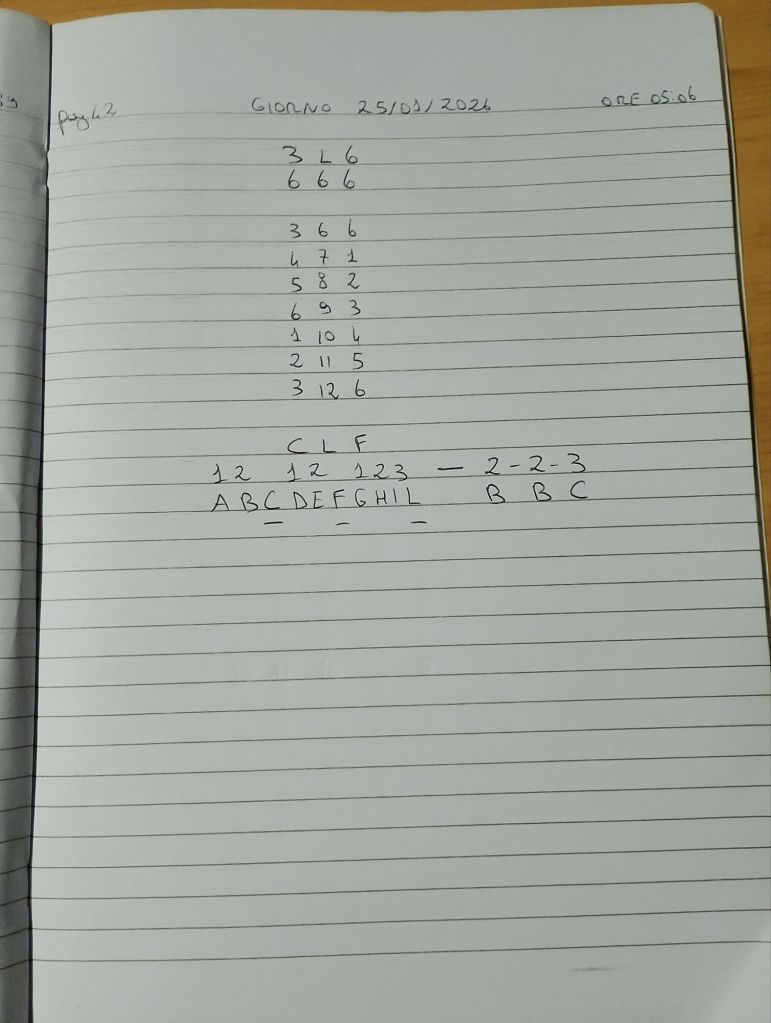 pag 42 GIORNO 25/01/2026 ORE 05:06
3 L 6
6 6 6
3 6 6
4 7 1
5 8 2
6 9 3
1 10 4
2 11 5
3 12 6
C L F
12 12 123 — 2-2-3
ABC DEF GHIL B B C